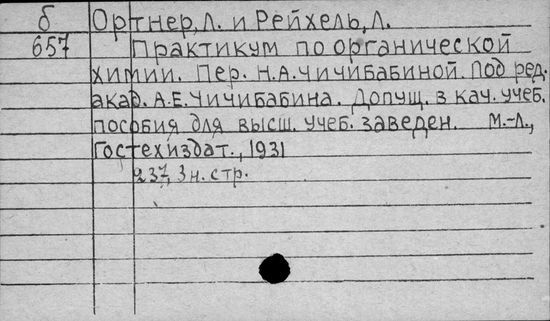 б Ортнер, Л. и Рейхель, Л.
657 Практикум по органической
химии. Пер. Н.А. Чичибабиной. Под ред.
акад. А.Е. Чичибабина. Допущ. в кач. учеб.
пособия для высш. учеб. заведен. М.-Л.,
Гостехиздат., 1931
237, 3 н. стр.